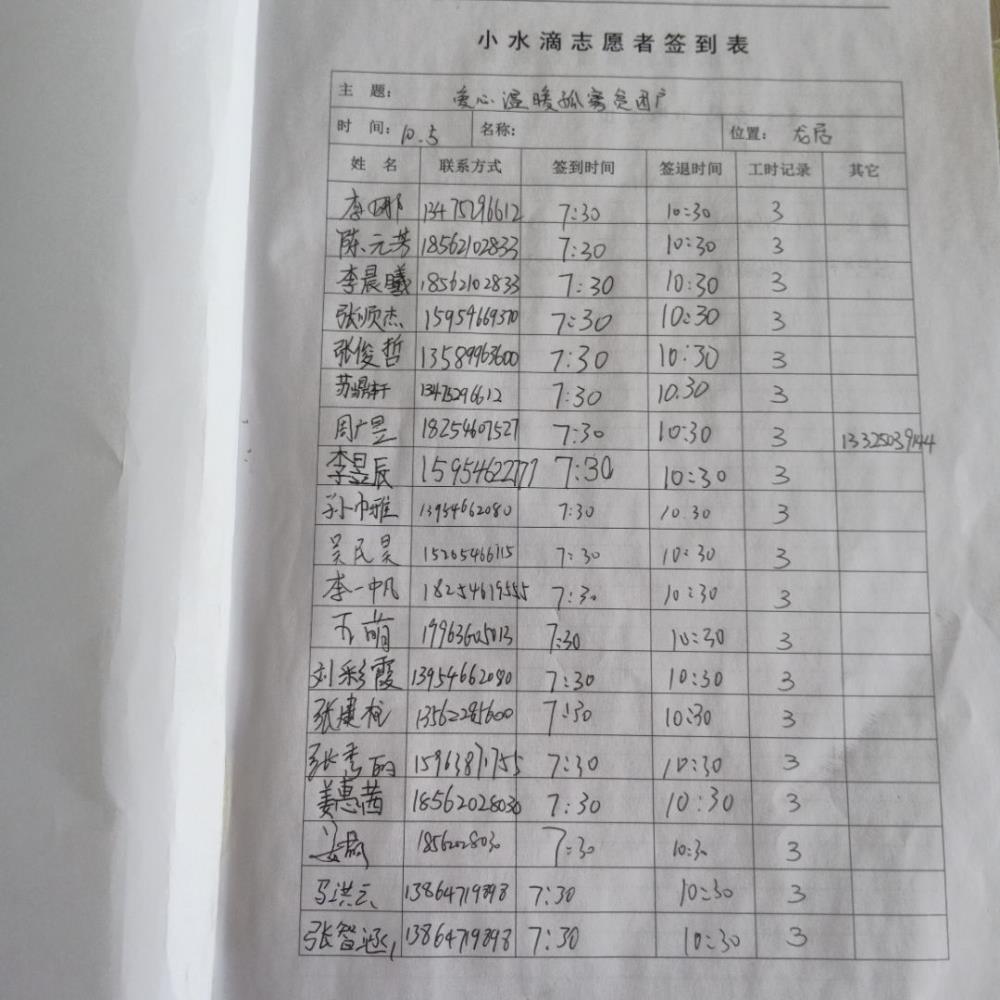 小水滴志愿者签到表
主 题: 爱心温暖孤寡贫困户
时 间: 10.5 名称: 位置: 龙居
姓 名 联系方式 签到时间 签退时间 工时记录 其它
李娜 13475296612 7:30 10:30 3
陈元芳 18562102833 7:30 10:30 3
李晨曦 18562102833 7:30 10:30 3
张顺杰 15954669370 7:30 10:30 3
张俊哲 13589963600 7:30 10:30 3
苏鼎轩 13475296612 7:30 10.30 3
周广昱 18254607527 7:30 10:30 3 13325039144
李昱辰 15954622777 7:30 10:30 3
孙巾雅 13954662080 7:30 10.30 3
吴民昊 15265466715 7:30 10:30 3
李一中凡 18254619555 7:30 10:30 3
萌 19963605013 7:30 10:30 3
刘彩霞 13954662080 7:30 10:30 3
张建柱 13562285600 7:30 10:30 3
张秀丽 15963871755 7:30 10:30 3
姜惠茜 18562028030 7:30 10:30 3
18562028030 7:30 10:30 3
马洪云 13864719898 7:30 10:30 3
张智涵 13864719898 7:30 10:30 3